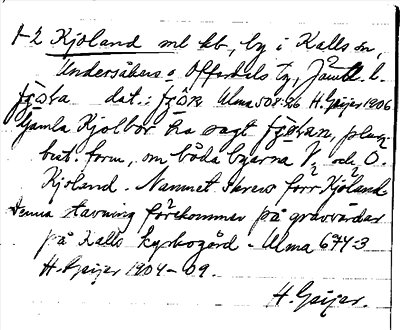 1-2 Kjoland ml kb, by i Kalls sn,
Undersåkers o. Offerdals tg, Jämtl. l.
dat.: Ulma 508:86 H. Geijer 1906
Gamla Kjolbor ha sagt
best. form, om båda byarna V. och Ö.
Kjoland. Namnet skrevs förr Kjöland
Denna stavning förekommer på gravvårdar
på Kalls kyrkogård - Ulma 674:3
H. Geijer 1904-09.
H. Geijer.